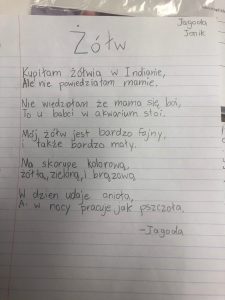 Jagoda
Janik
Żółw
Kupiłam żółwia w Indianie,
Ale nie powiedziałam mamie.
Nie wiedziałam że mama się boi,
To u babci w akwarium stoi.
Mój żółw jest bardzo fajny,
i także bardzo mały.
Na skorupę kolorową,
żółtą, zieloną, i brązową.
W dzień udaje anioła,
A w nocy pracuje jak pszczoła.
-Jagoda